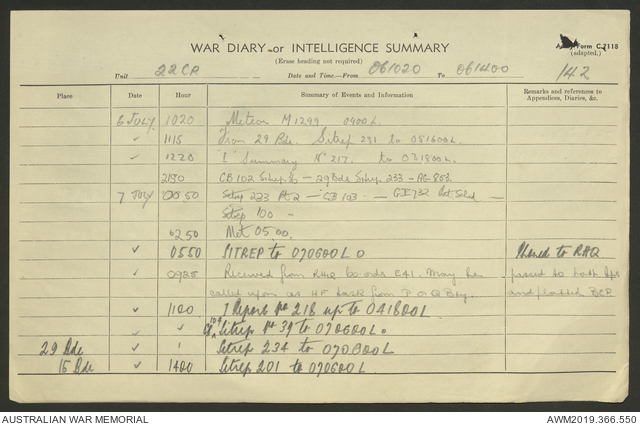 WAR DIARY or INTELLIGENCE SUMMARY
Form C.2118
(adapted.)
(Erase heading not required)
Unit 22 CA Date and Time—From 061020 To 061400 142
Place Date Hour Summary of Events and Information Remarks and references to Appendices, Diaries, &c.
6 JULY. 1020 Meteor M1299 0900L.
✓ 1115 From 29 Bde. Sitrep 231 to 051600L.
✓ 1220 "I" Summary No 217. to 031800L.
2130 CB 102 Sitrep — 29 Bde Sitrep 233 —
7 July 0050 Sitrep 223 Pt 2 — CB 103 —
Sitrep 100 —
0250 Met 0500.
✓ 0550 SITREP to 070600L Phoned to RHQ
✓ 0925 Received from RHQ co-ords May be passed to both
called upon as HF task from P or Q Bty. and plotted
✓ 1100 I Report No 218 up to 041800L
✓ " 104 Sitrep No 39 to 070600L.
29 Bde ✓ " Sitrep 234 to 070600L
15 Bde ✓ 1400 Sitrep 201 to 070600L
AUSTRALIAN WAR MEMORIAL AWM2019.366.550